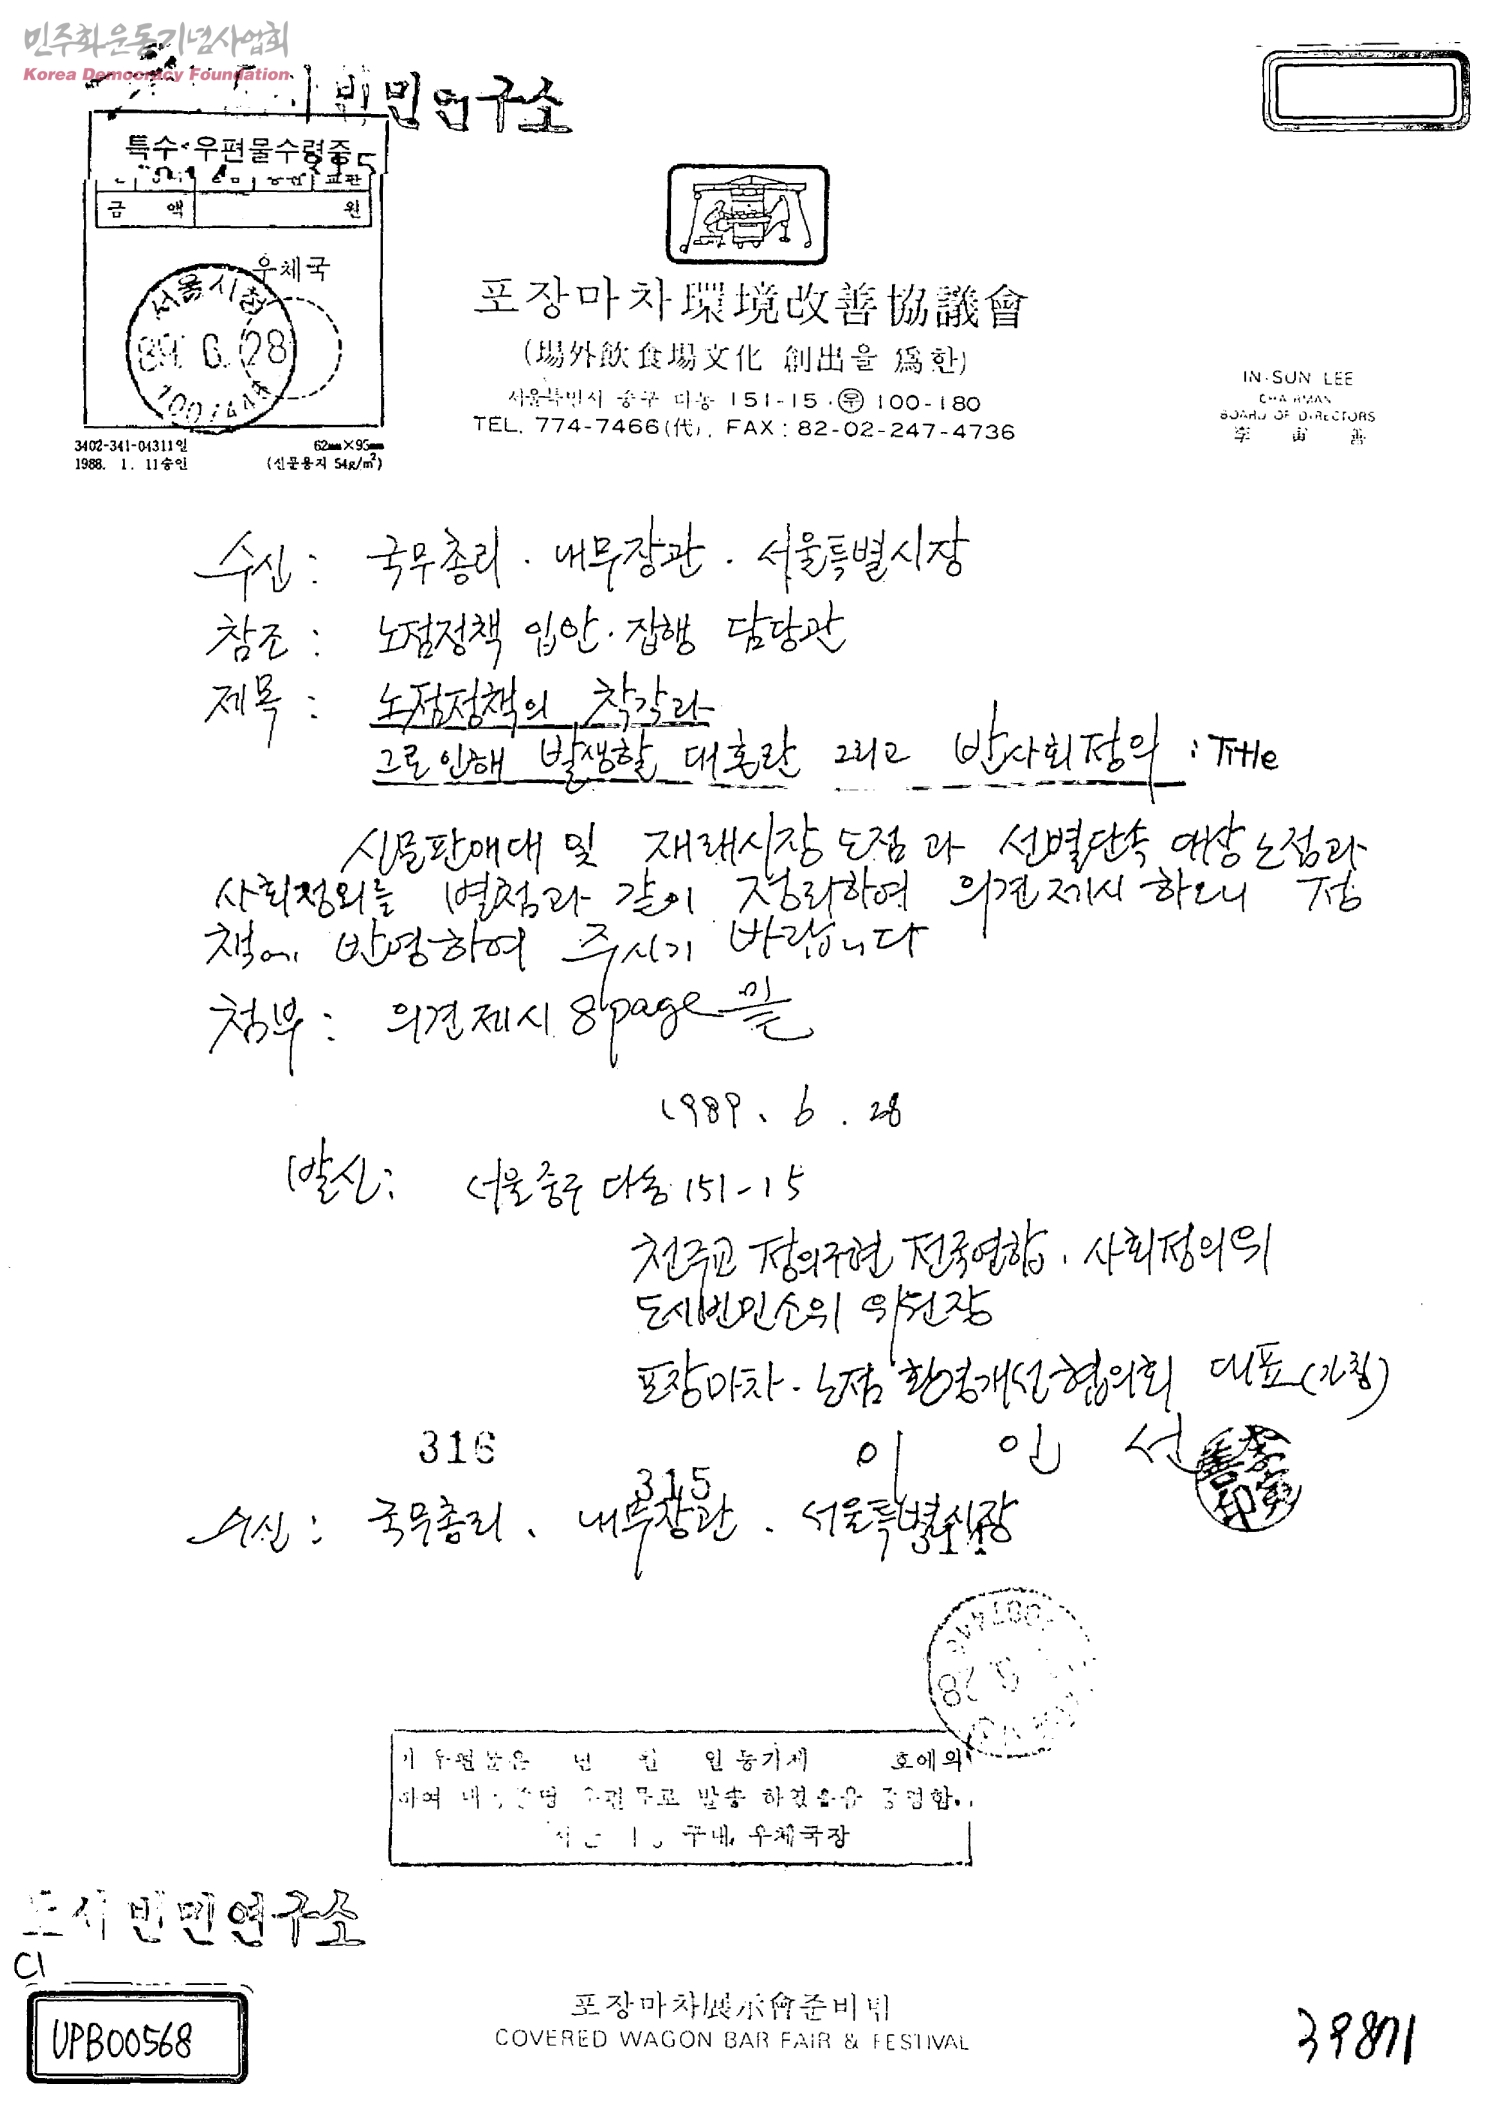 민주화운동기념사업회
Korea Democracy Foundation
빈민연구소
특수우편물수령증
315
금 액 원
우체국
서울시청
89. 6. 28
100744
3402-341-04311일
1988. 1. 11승인
62㎜×95㎜
(신문용지 54g/㎡)
포장마차環境改善協議會
(場外飮食場文化 創出을 爲한)
서울특별시 중구 다동 151-15 ㉾ 100-180
TEL. 774-7466(代), FAX : 82-02-247-4736
IN-SUN LEE
CHAIRMAN
BOARD OF DIRECTORS
李 寅 善
수신 : 국무총리 · 내무장관 · 서울특별시장
참조 : 노점정책 입안 · 집행 담당관
제목 : 노점정책의 착각과
그로인해 발생할 대혼란 그리고 반사회정의 : Title
신문판매대 및 재래시장 노점과 선별단속 대상노점과
사회정의를 별첨과 같이 정리하여 의견제시 하오니 정
책에 반영하여 주시기 바랍니다
첨부 : 의견제시 8page 끝
1989. 6. 28
발신 : 서울중구 다동 151-15
천주교 정의구현 전국연합 · 사회정의위
도시빈민소위 위원장
포장마차 · 노점 환경개선협의회 대표(가칭)
이 인 선
李寅善印
316
315
수신 : 국무총리 . 내무장관 . 서울특별시장
이 우편물은 년 월 일 등기제 호에의
하여 내용증명 우편물로 발송 하겼음을 증명함.
구내 우체국장
도시빈민연구소
C1
UPB00568
포장마차展示會준비
COVERED WAGON BAR FAIR & FESTIVAL
39871